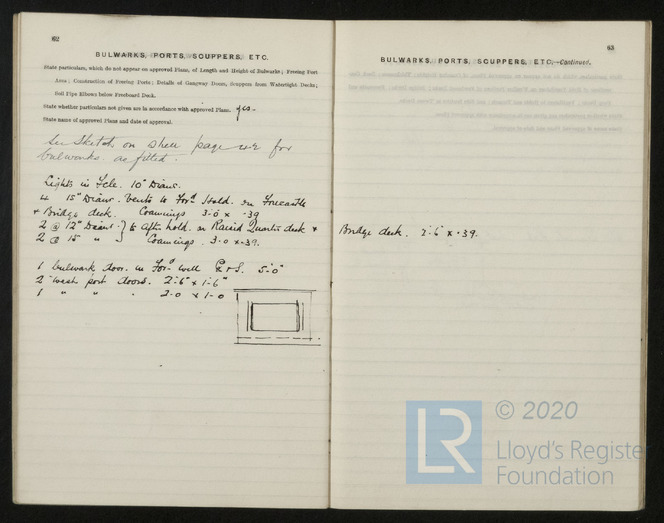 62
BULWARKS, PORTS, SCUPPERS, ETC.
State particulars, which do not appear on approved Plans, of Length and Height of Bulwarks; Freeing Port
Area; Construction of Freeing Ports; Details of Gangway Doors, Scuppers from Watertight Decks;
Soil Pipe Elbows below Freeboard Deck.
State whether particulars not given are in accordance with approved Plans. yes-
State name of approved Plans and date of approval.
See Sketch on shell page for
bulwarks as fitted.
Lights in Fcle. 10" Diams.
4 15" Diams. Vents to For'd Hold. on Forecastle
+ Bridge deck. Coamings 3.0 x .39
2 @ 12" Diams } to After hold. on Raised Quarter deck +
2 @ 15 " } Coamings. 3.0 x .39.
1 bulwark door. in For'd well P & S. 5'.0"
2 wash port doors. 2'.6" x 1'.6"
1 " " . 2.0 x 1.0
63
BULWARKS, PORTS, SCUPPERS, ETC.—Continued.
Bridge deck. 2'.6" x .39.
LR
© 2020
Lloyd's Register
Foundation